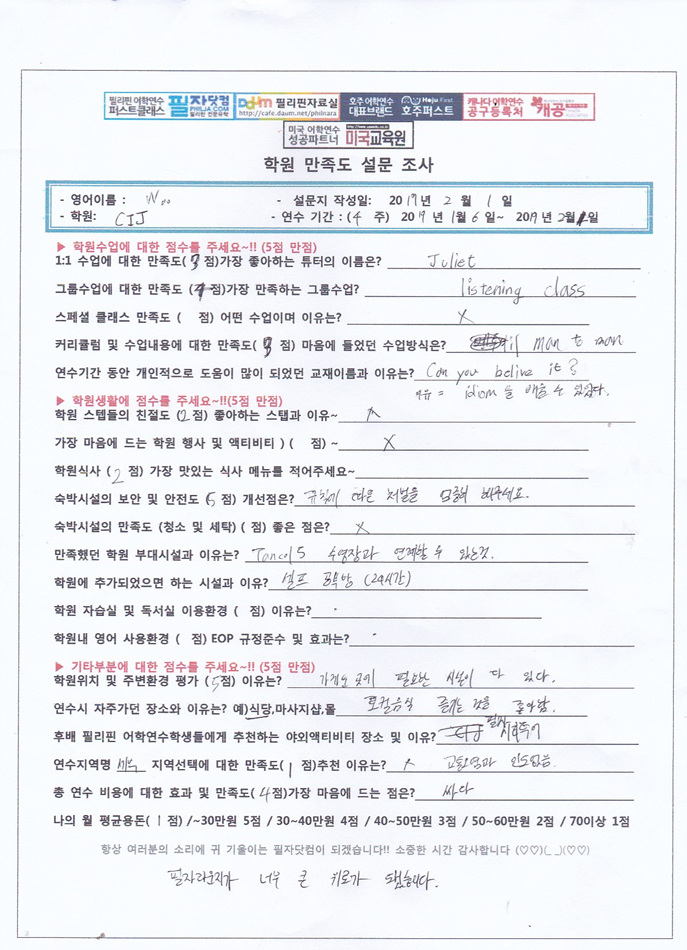 필리핀 어학연수 퍼스트클래스 필자닷컴 PHILJA.COM 필리핀 전문유학 Daum 필리핀자료실 http://cafe.daum.net/philnara 호주 어학연수 대표브랜드 Hoju First 호주퍼스트 캐나다 어학연수 공구등록처 캐공
미국 어학연수 성공파트너 미국교육원
학원 만족도 설문 조사
- 영어이름 : Woo - 설문지 작성일: 2019년 2 월 1 일
- 학원: CIJ - 연수 기간 : (4 주) 2019 년 1월 6 일~ 2019년 2월 1일
▶ 학원수업에 대한 점수를 주세요~!! (5점 만점)
1:1 수업에 대한 만족도(3 점)가장 좋아하는 튜터의 이름은? Juliet
그룹수업에 대한 만족도( 점)가장 만족하는 그룹수업? listening class
스페셜 클래스 만족도 ( 점) 어떤 수업이며 이유는? X
커리큘럼 및 수업내용에 대한 만족도(3 점) 마음에 들었던 수업방식은? man to man
연수기간 동안 개인적으로 도움이 많이 되었던 교재이름과 이유는? Can you belive it?
이유 = idiom 을 배울 수 있었다.
▶ 학원생활에 점수를 주세요~!!(5점 만점)
학원 스텝들의 친절도 (2점) 좋아하는 스탭과 이유~ X
가장 마음에 드는 학원 행사 및 액티비티 ) ( 점) ~ X
학원식사 (2 점) 가장 맛있는 식사 메뉴를 적어주세요~
숙박시설의 보안 및 안전도 (5 점) 개선점은? 규칙에 따른 처벌을 엄중히 해주세요.
숙박시설의 만족도 (청소 및 세탁) ( 점) 좋은 점은? X
만족했던 학원 부대시설과 이유는? 수영장과 연계할 수 있는것.
학원에 추가되었으면 하는 시설과 이유? 셀프 공부방 (24시간)
학원 자습실 및 독서실 이용환경 ( 점) 이유는?
학원내 영어 사용환경 ( 점) EOP 규정준수 및 효과는?
▶ 기타부분에 대한 점수를 주세요~!! (5점 만점)
학원위치 및 주변환경 평가 (5점) 이유는? 가까운 곳에 필요한 시설이 다 있다.
연수시 자주가던 장소와 이유는? 예)식당,마사지샵,몰 로컬음식 즐기는 것을 좋아함.
후배 필리핀 어학연수학생들에게 추천하는 야외액티비티 장소 및 이유?
연수지역명 세부 지역선택에 대한 만족도(1 점)추천 이유는? X 교통열과 인도없음.
총 연수 비용에 대한 효과 및 만족도(4점)가장 마음에 드는 점은? 싸다
나의 월 평균용돈( 1 점) /~30만원 5점 / 30~40만원 4점 / 40~50만원 3점 / 50~60만원 2점 / 70이상 1점
항상 여러분의 소리에 귀 기울이는 필자닷컴이 되겠습니다!! 소중한 시간 감사합니다 (♡♡)(_ _)(♡♡)
필자라운지가 너무 큰 위로가 되었습니다.